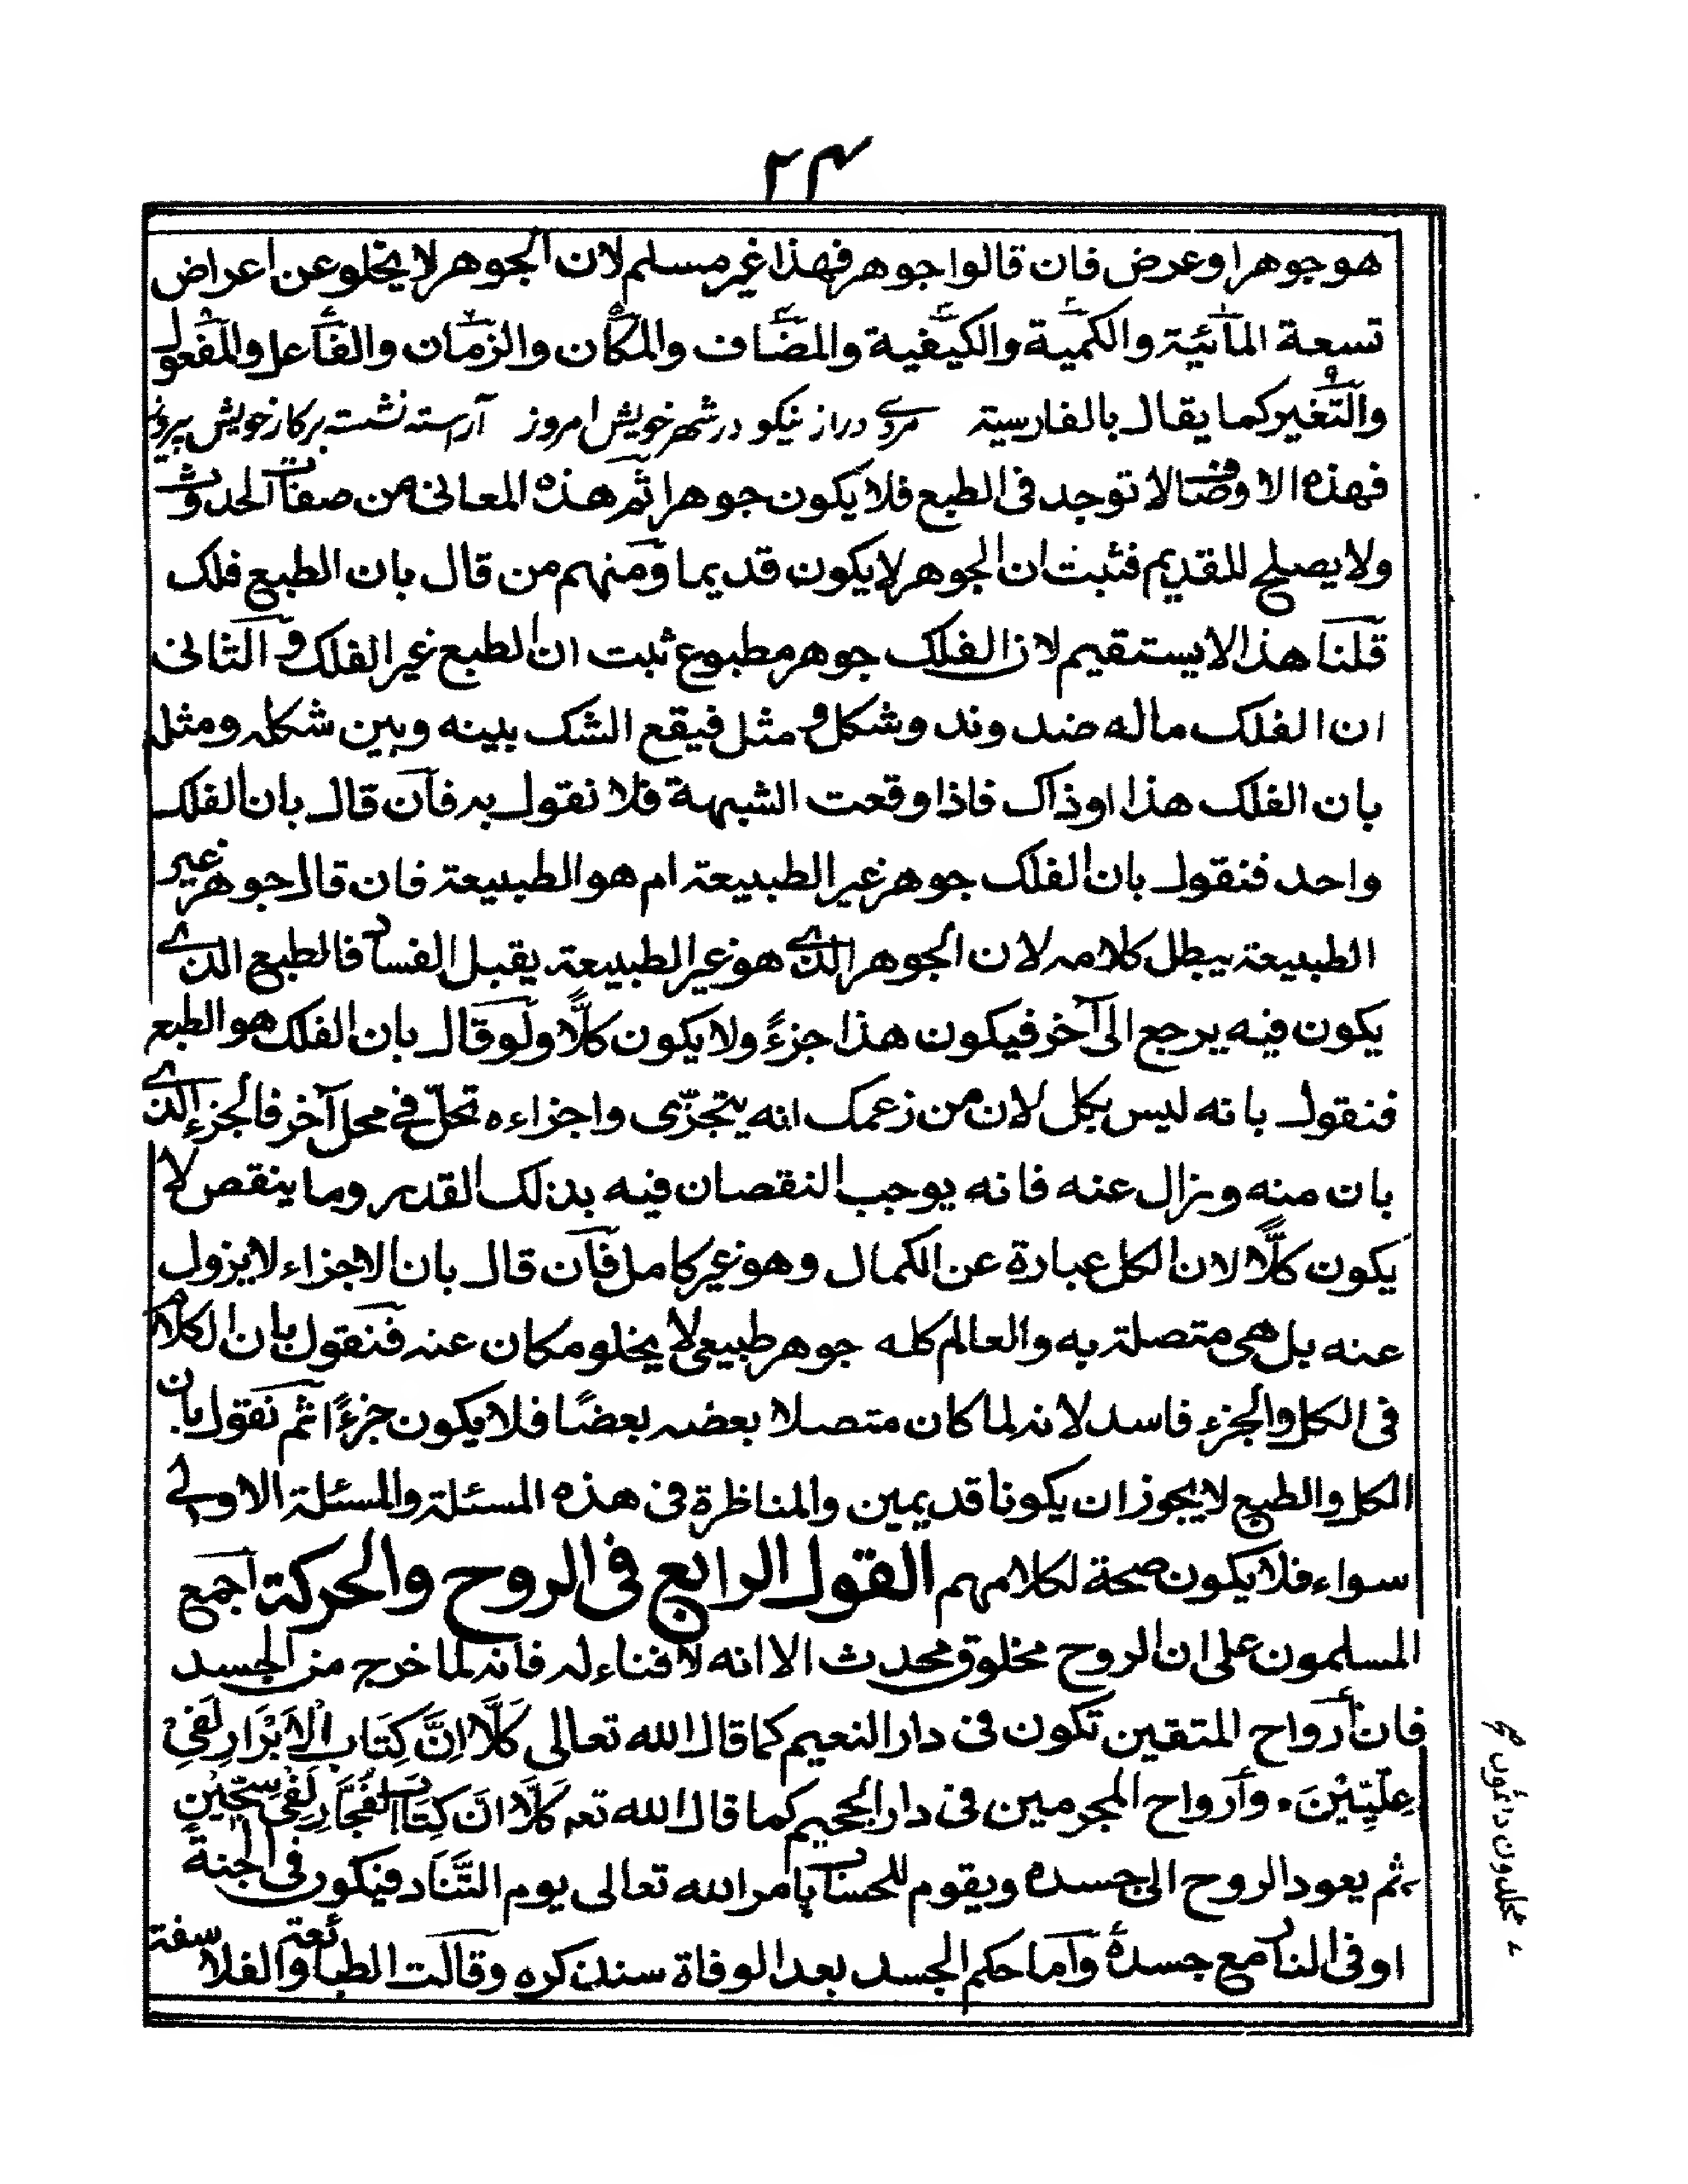 ۲۴
هو جوهر او عرض فان قالوا جوهر فهذا غير مسلم لان الجوهر لا يخلو عن اعراض
تسعة المائية والكمية والكيفية والمضاف والمكان والزمان والفاعل والمفعول
والتغير كما يقال بالفارسية مردے دراز نيكو در شهر خويش امروز آراسته نشسته بر كار خويش پيروز
فهذه الاوصاف لا توجد فى الطبع فلا يكون جوهرا ثم هذه المعانى من صفات الحدوث
ولا يصلح للقديم فثبت ان الجوهر لا يكون قديما ومنهم من قال بان الطبع فلك
قلنا هذا لا يستقيم لان الفلك جوهر مطبوع ثبت ان الطبع غير الفلك و الثانى
ان الفلك ماله ضد وند وشكل و مثل فيقع الشك بينه وبين شكله ومثله
بان الفلك هذا او ذاك فاذا وقعت الشبهة فلا نقول به فان قال بان الفلك
واحد فنقول بان الفلك جوهر غير الطبيعة ام هو الطبيعة فان قال جوهر غير
الطبيعة يبطل كلامه لان الجوهر الذى هو غير الطبيعة يقبل الفساد فالطبع الذى
يكون فيه يرجع الى آخر فيكون هذا جزءً ولا يكون كلًّا ولو قال بان الفلك هو الطبع
فنقول بانه ليس بكل لان من زعمك انه يتجزّى واجزاءه تحلّ في محل آخر فالجزء الذى
بان منه وزال عنه فانه يوجب النقصان فيه بذلك القدر وما ينقص لا
يكون كلًّا لان الكل عبارة عن الكمال وهو غير كامل فان قال بان الاجزاء لا يزول
عنه بل هى متصلة به والعالم كله جوهر طبيعى لا يخلو مكان عنه فنقول بان الكلام
فى الكل والجزء فاسد لانه لما كان متصلا بعضه بعضًا فلا يكون جزءًا ثم نقول بان
الكل والطبع لا يجوز ان يكونا قديمين والمناظرة فى هذه المسئلة والمسئلة الاولى
سواء فلا يكون صحة لكلامهم القول الرابع فى الروح والحركة اجمع
المسلمون على ان الروح مخلوق محدث الا انه لا فناء له فانه لما خرج من الجسد
فان أرواح المتقين تكون فى دار النعيم كما قال الله تعالى كَلَّا اِنَّ كِتَابَ الْاَبْرَارِ لَفِىْ
عِلِّيِّيْنَ ٭ وأرواح المجرمين فى دار الجحيم كما قال الله تعہ كَلَّا انَّ كِتَابَ الْفُجَّارِ لَفِىْ سِجِّيْنٍ
ثم يعود الروح الى جسده ويقوم للحساب بامر الله تعالى يوم التَّنَاد فيكون فى الجنة
او فى النار مع جسدهٖ واما حكم الجسد بعد الوفاة سنذكره وقالت الطبائعة والفلاسفة